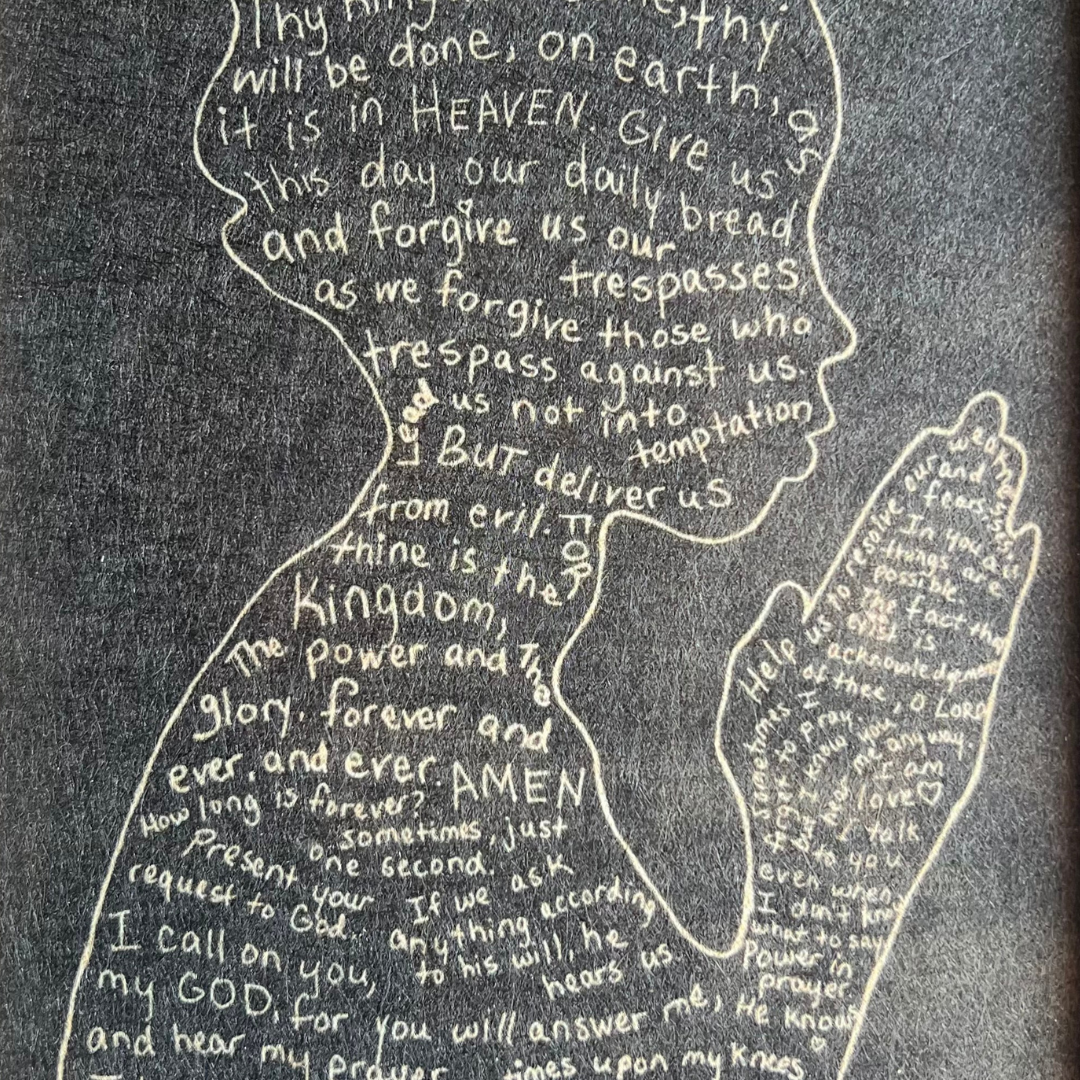 Thy thy
will be done, on earth, as
it is in HEAVEN. Give us
this day our daily bread
and forgive us our
trespasses
as we forgive those who
trespass against us.
Lead us not into
temptation
But deliver us
from evil. For
thine is the
Kingdom,
The power and The
glory. forever and
ever, and ever. AMEN
How long is forever?
sometimes, just
one second.
Present your
request to God.
If we ask
anything according
to his will, he
hears us
I call on you,
my GOD, for you will answer me, He knows
and hear my prayer times upon my knees
Help us to resolve our
weaknesses
and
fears.
In you all
things are
possible
The fact that
is
acknowledgment
of thee, O LORD
sometimes I
forget to pray.
but I know you
hear me anyway.
I am
love♡
I talk
to you
even when
I don't know
what to say
Power in
prayer.